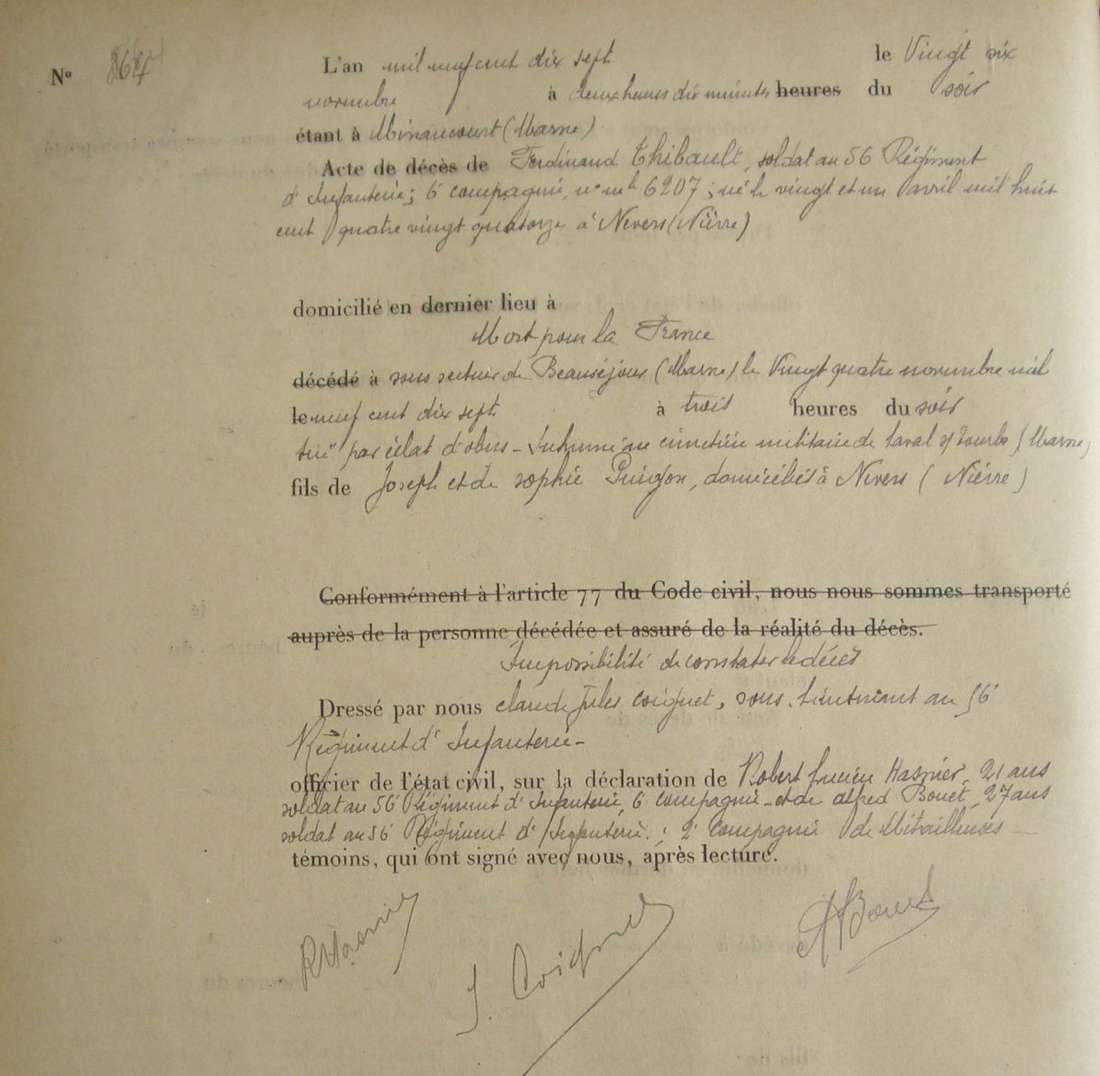 N° 864
L'an mil neuf cent dix sept le Vingt six
novembre à deux heures dix minutes heures du soir
étant à Minaucourt (Marne)
Acte de décès de Ferdinand Thibault, soldat au 56 Régiment
d'Infanterie; 6 compagnie, n° mle 6207; né le vingt et un avril mil huit
cent quatre vingt quatorze à Nevers (Nièvre)
domicilié en dernier lieu à
Mort pour la France
décédé à sous secteur de Beauséjour (Marne) le Vingt quatre novembre mil
le neuf cent dix sept à trois heures du soir
"tué" par éclat d'obus - Inhumé au cimetière militaire de Laval s/ Tourbe (Marne)
fils de Joseph et de sophie, domiciliés à Nevers (Nièvre)
Conformément à l'article 77 du Code civil, nous nous sommes transporté
auprès de la personne décédée et assuré de la réalité du décès.
Impossibilité de constater le décès
Dressé par nous claude jules Coignet, sous-lieutenant au 56e
Régiment d'Infanterie -
officier de l'état civil, sur la déclaration de Robert Lucien Hasnier, 21 ans
soldat au 56 Régiment d'Infanterie, 6 compagnie - et de alfred Bouet, 27 ans
soldat au 56 Régiment d'Infanterie, 2e compagnie de Mitrailleuses
témoins, qui ont signé avec nous, après lecture.
R Hasnier
J. Coignet
A Bouet